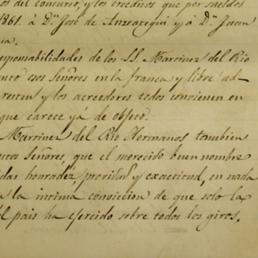 sos del concurso, y los creditos que por sueldos
1861. á Dn José de Anzoategui y á Dn Juan
ua.
esponsabilidades de los SS. Martinez del Rio
esos Señores en la franca y libre ad-
y los acreedores todos convienen en
que carece ya de objeto.
Martinez del Rio Hermanos tambien
Señores, que el merecido buen nombre
honradez, probidad y exactitud, en nada
la intima conviccion de que solo la
pais ha ejercido sobre todos los giros,